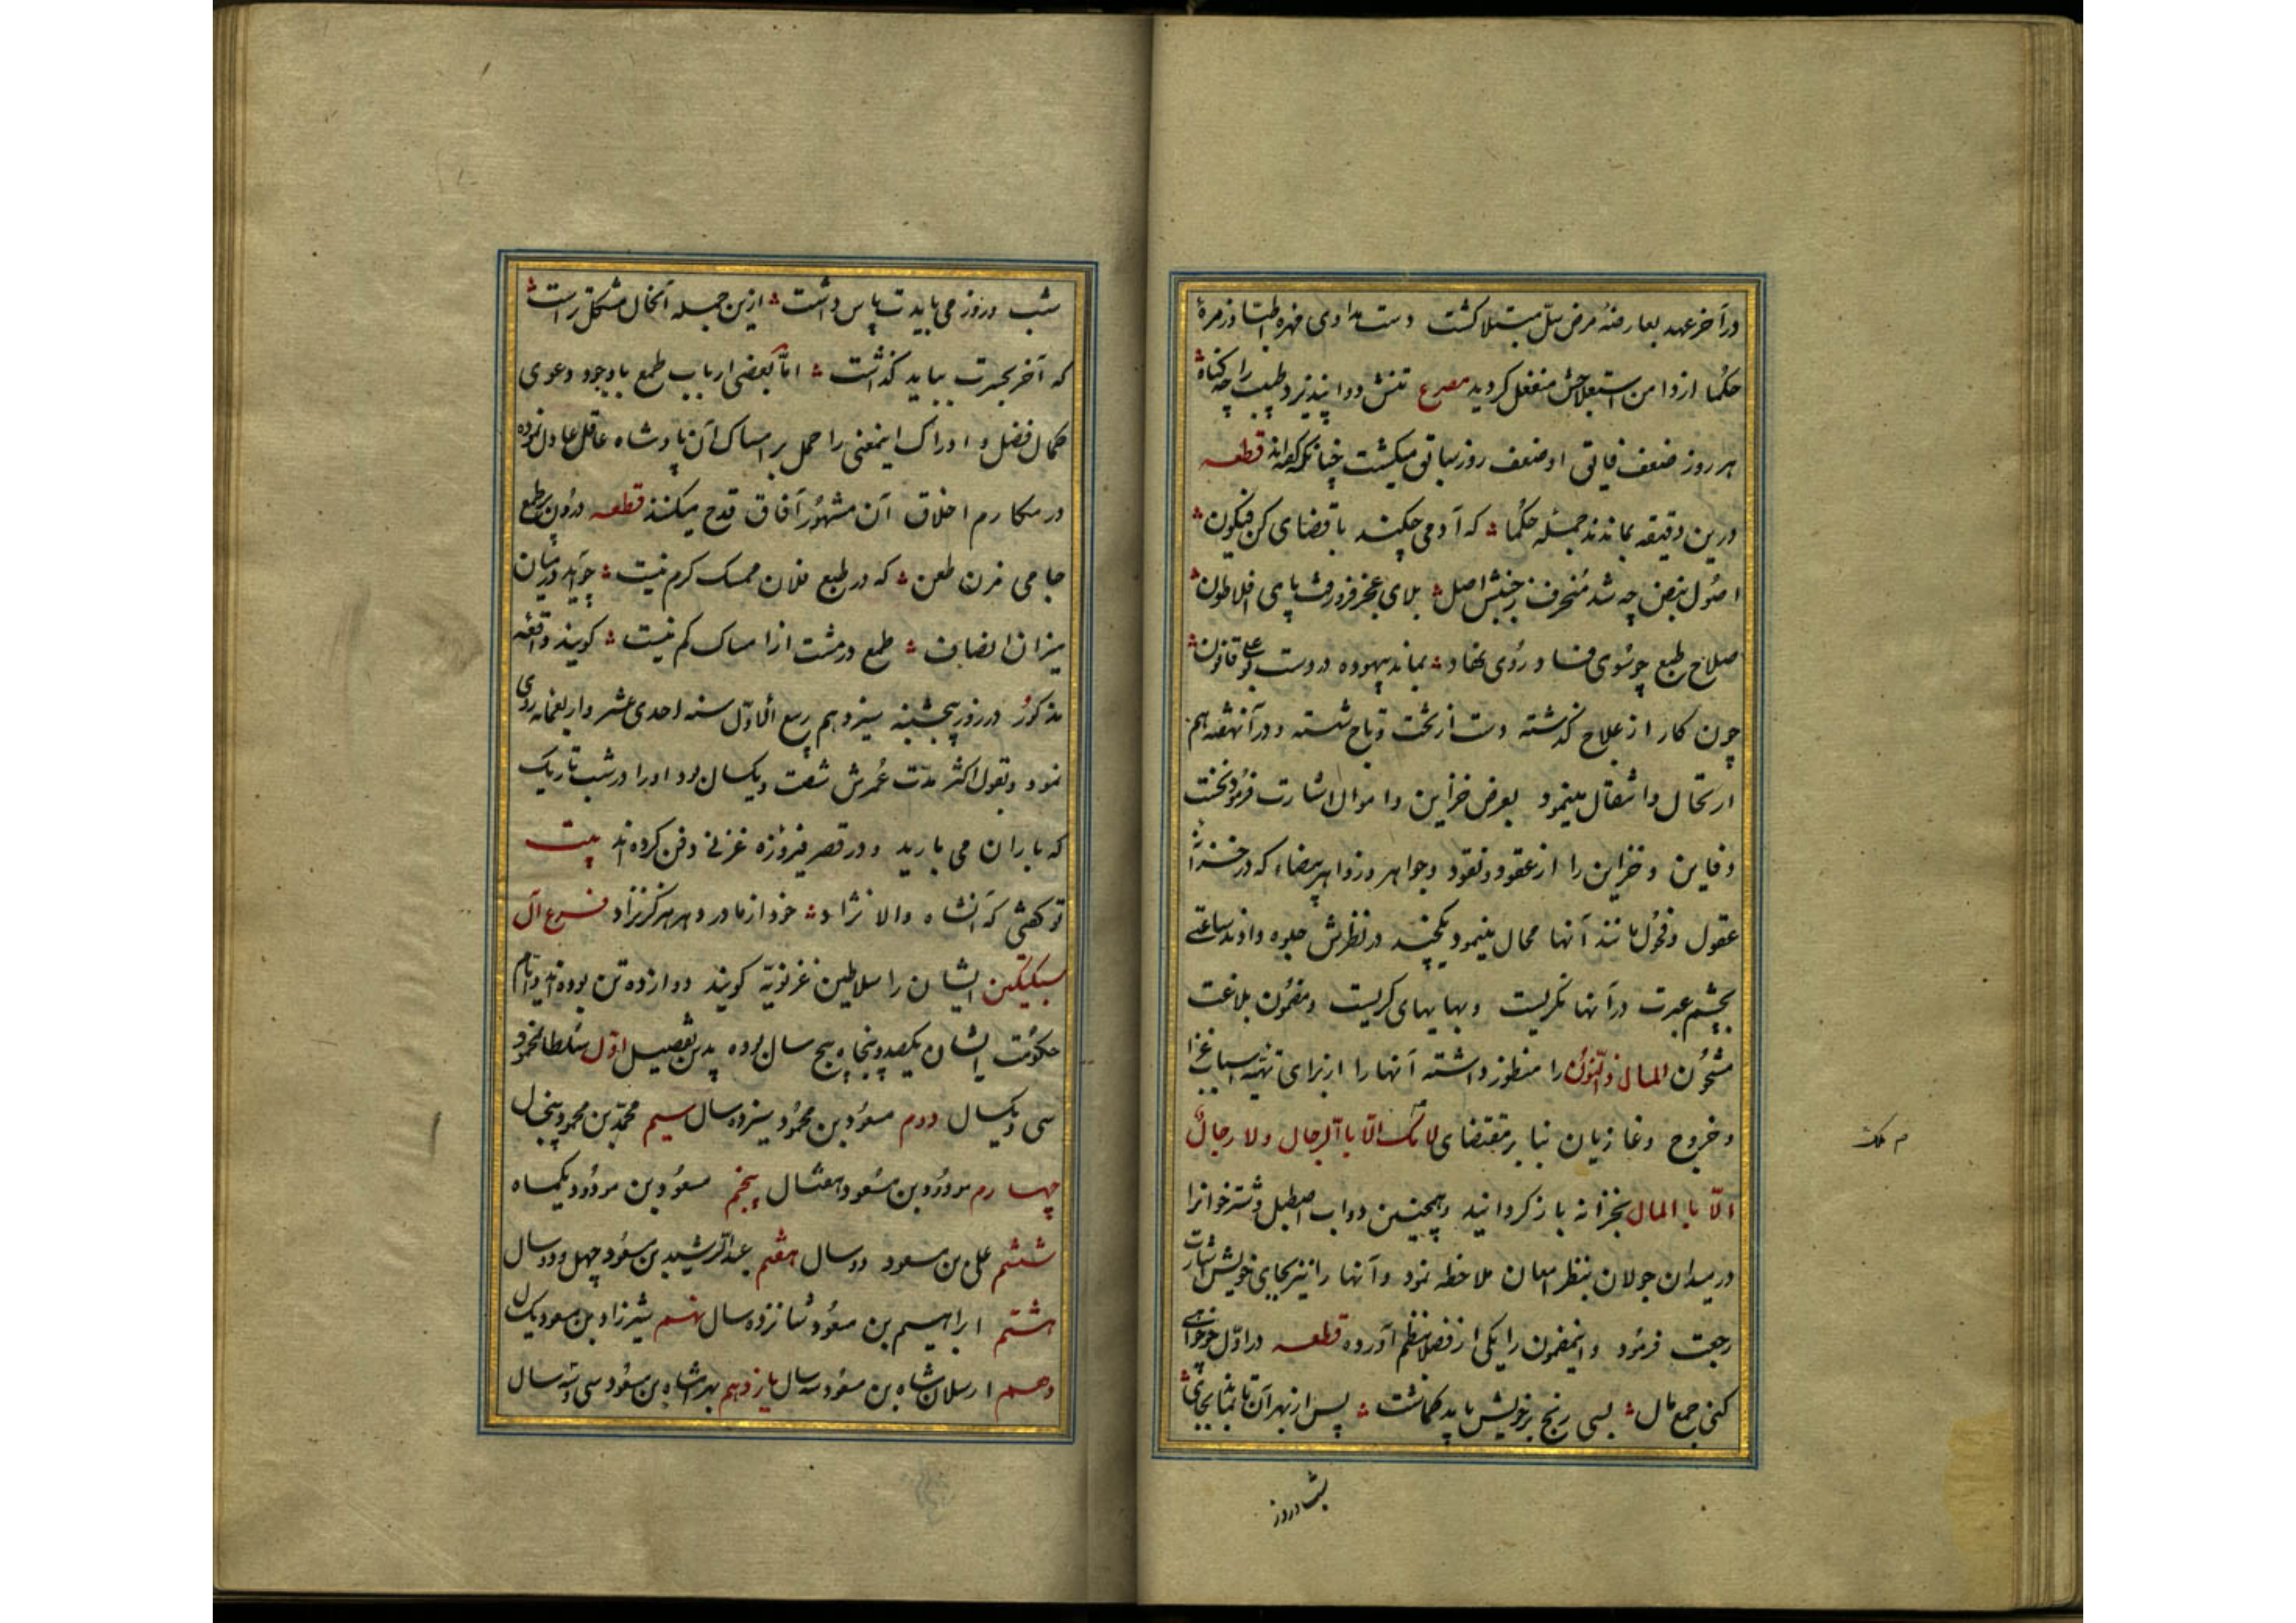 در آخر عهد بعارضهٔ مرض سل مبتلا کشت دست مداوی مهره اطبا و زمرهٔ
حکما از دامن استعلاجش منفعل کردید مصرع تنش دوا نپذیرد طبیب را چه کناه
هر روز ضعف قیاتی او ضعف روز سباتی میکشت چنانکه کفته‌اند قطعه
درین دقیقه بماندند جمله حکما که آدمی چکند با قضای کن فیکون
اصول نبض چه شد منحرف ز جنبش اصل بلای عجز فرو رفت پای افلاطون
صلاح طبع چو سوی فساد روی نهاد بماند بیهوده در دست بوعلی قانون
چون کار از علاج کذشته دست از تخت و تاج شسته و در آن هفته هم
ارتحال و انتقال مینمود بعرض خزاین و اموال اشارت فرمود نخست
دفاین و خزاین را از عقود و نقود و جواهر و زواهر بیضاء که در خزانهٔ
عقول و فحول مانند آنها محال مینمود یکچند در نظرش جلوه دادند ساعتی
بچشم عبرت در آنها نکریست و بهایهای کریست و مضمون بلاغت
مشحون المال ذو النون را منظور داشته آنها را از برای تهیه اسباب غزا
و خروج و غازیان بنا بر مقتضای لا ملک الا با الرجال ولا رجال
م ملک
الا با المال بخزانه باز کردانید و همچنین دواب اصطبل و شترخوانرا
در میدان جولان بنظر امعان ملاحظه نمود و آنها را نیز بجای خویش اشارت
رجعت فرمود و اینمضمون را یکی از فضلا بنظم آورده قطعه در اول چو خواهی
کنی جمع مال بسی رنج بر خویش باید کماشت پس از بهر آن تا بماند بجای
شب و روز
شب و روز می بایدت پاس داشت ازین جمله آنحال مشکل‌تر است
که آخر بحسرت بباید کذاشت اما بعضی ارباب طمع باوجود دعوی
کمال فضل و ادراک اینمعنی را حمل بر امساک آن پادشاه عاقل عادل نموده
در مکارم اخلاق آن مشهور آفاق قدح میکنند قطعه درون پر طمع
جامی مزن طعن که در طبع فلان ممسک کرم نیست چو آید در میان
میزان انصاف طمع در مشت از امساک کم نیست کویند واقعه
مذکور در روز پنجشنبه سیزدهم ربیع الاول سنه احدی عشر و اربعمائه روی
نمود و بقول اکثر مدت عمرش شصت و یکسال بود او را در شب تاریک
که باران می بارید و در قصر فیروزه غزنی دفن کرده‌اند بیت
تو کفتی که آنشاه والا نژاد خود از مادر دهر هرکز نزاد فرع آل
سبکتکین ایشان را سلاطین غزنویه کویند دوازده تن بوده‌اند و ایام
حکومت ایشان یکصد و پنجاه پنج سال بوده بدین تفصیل اول سلطان محمود
سی و یکسال دوم مسعود بن محمود سیزده سال سیم محمد بن محمود پنجسال
چهارم مودود بن مسعود هفتسال پنجم مسعود بن مودود یکماه
ششم علی بن مسعود دو سال هفتم عبدالرشید بن مسعود چهل و دو سال
هشتم ابراهیم بن مسعود شانزده سال نهم شیرزاد بن مسعود یکسال
دهم ارسلان شاه بن مسعود سه سال یازدهم بهرامشاه بن مسعود سی و سه سال